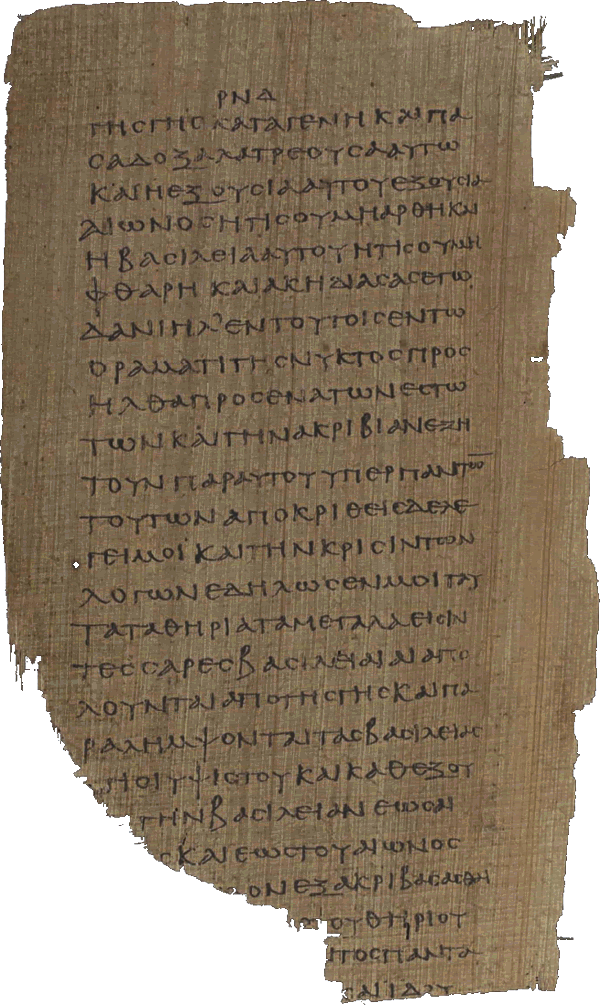 ΡΝΔ
ΤΗΣ ΓΗΣ ΚΑΤΑ ΓΕΝΗ ΚΑΙ ΠΑ
ΣΑ ΔΟΞΑ ΛΑΤΡΕΟΥΣΑ ΑΥΤΩ
ΚΑΙ Η ΕΞΟΥΣΙΑ ΑΥΤΟΥ ΕΞΟΥΣΙΑ
ΑΙΩΝΟΣ ΗΤΙΣ ΟΥ ΜΗ ΑΡΘΗ ΚΑΙ
Η ΒΑΣΙΛΕΙΑ ΑΥΤΟΥ ΗΤΙΣ ΟΥ ΜΗ
ΦΘΑΡΗ ΚΑΙ ΑΚΗΔΙΑΣΑΣ ΕΓΩ
ΔΑΝΙΗΛ ΕΝ ΤΟΥΤΟΙΣ ΕΝ ΤΩ
ΟΡΑΜΑΤΙ ΤΗΣ ΝΥΚΤΟΣ ΠΡΟΣ
ΗΛΘΑ ΠΡΟΣ ΕΝΑ ΤΩΝ ΕΣΤΩ
ΤΩΝ ΚΑΙ ΤΗΝ ΑΚΡΙΒΙΑΝ ΕΖΗ
ΤΟΥΝ ΠΑΡ ΑΥΤΟΥ ΥΠΕΡ ΠΑΝΤΩ̅
ΤΟΥΤΩΝ ΑΠΟΚΡΙΘΕΙΣ ΔΕ ΛΕ
ΓΕΙ ΜΟΙ ΚΑΙ ΤΗΝ ΚΡΙΣΙΝ ΤΩΝ
ΛΟΓΩΝ ΕΔΗΛΩΣΕΝ ΜΟΙ ΤΑΥ
ΤΑ ΤΑ ΘΗΡΙΑ ΤΑ ΜΕΓΑΛΑ ΕΙΣΙΝ
ΤΕΣΣΑΡΕΣ ΒΑΣΙΛΕΙΑΙ ΑΙ ΑΠΟ
ΛΟΥΝΤΑΙ ΑΠΟ ΤΗΣ ΓΗΣ ΚΑΙ ΠΑ
ΡΑΛΗΜΨΟΝΤΑΙ ΤΑΣ ΒΑΣΙΛΕΙΑΣ
ΓΙΟΙ ΥΨΙΣΤΟΥ ΚΑΙ ΚΑΘΕΞΟΥ
ΤΗΝ ΒΑΣΙΛΕΙΑΝ ΕΩΣ ΑΙ
Σ ΚΑΙ ΕΩΣ ΤΟΥ ΑΙΩΝΟΣ
ΟΝ ΕΞΑΚΡΙΒΑΣΑΣΘΗ
ΤΟΥ ΘΗΡΙΟΥ
ΤΟΣ ΠΑΝΤΑ
ΚΑΙ ΙΔΟΥ